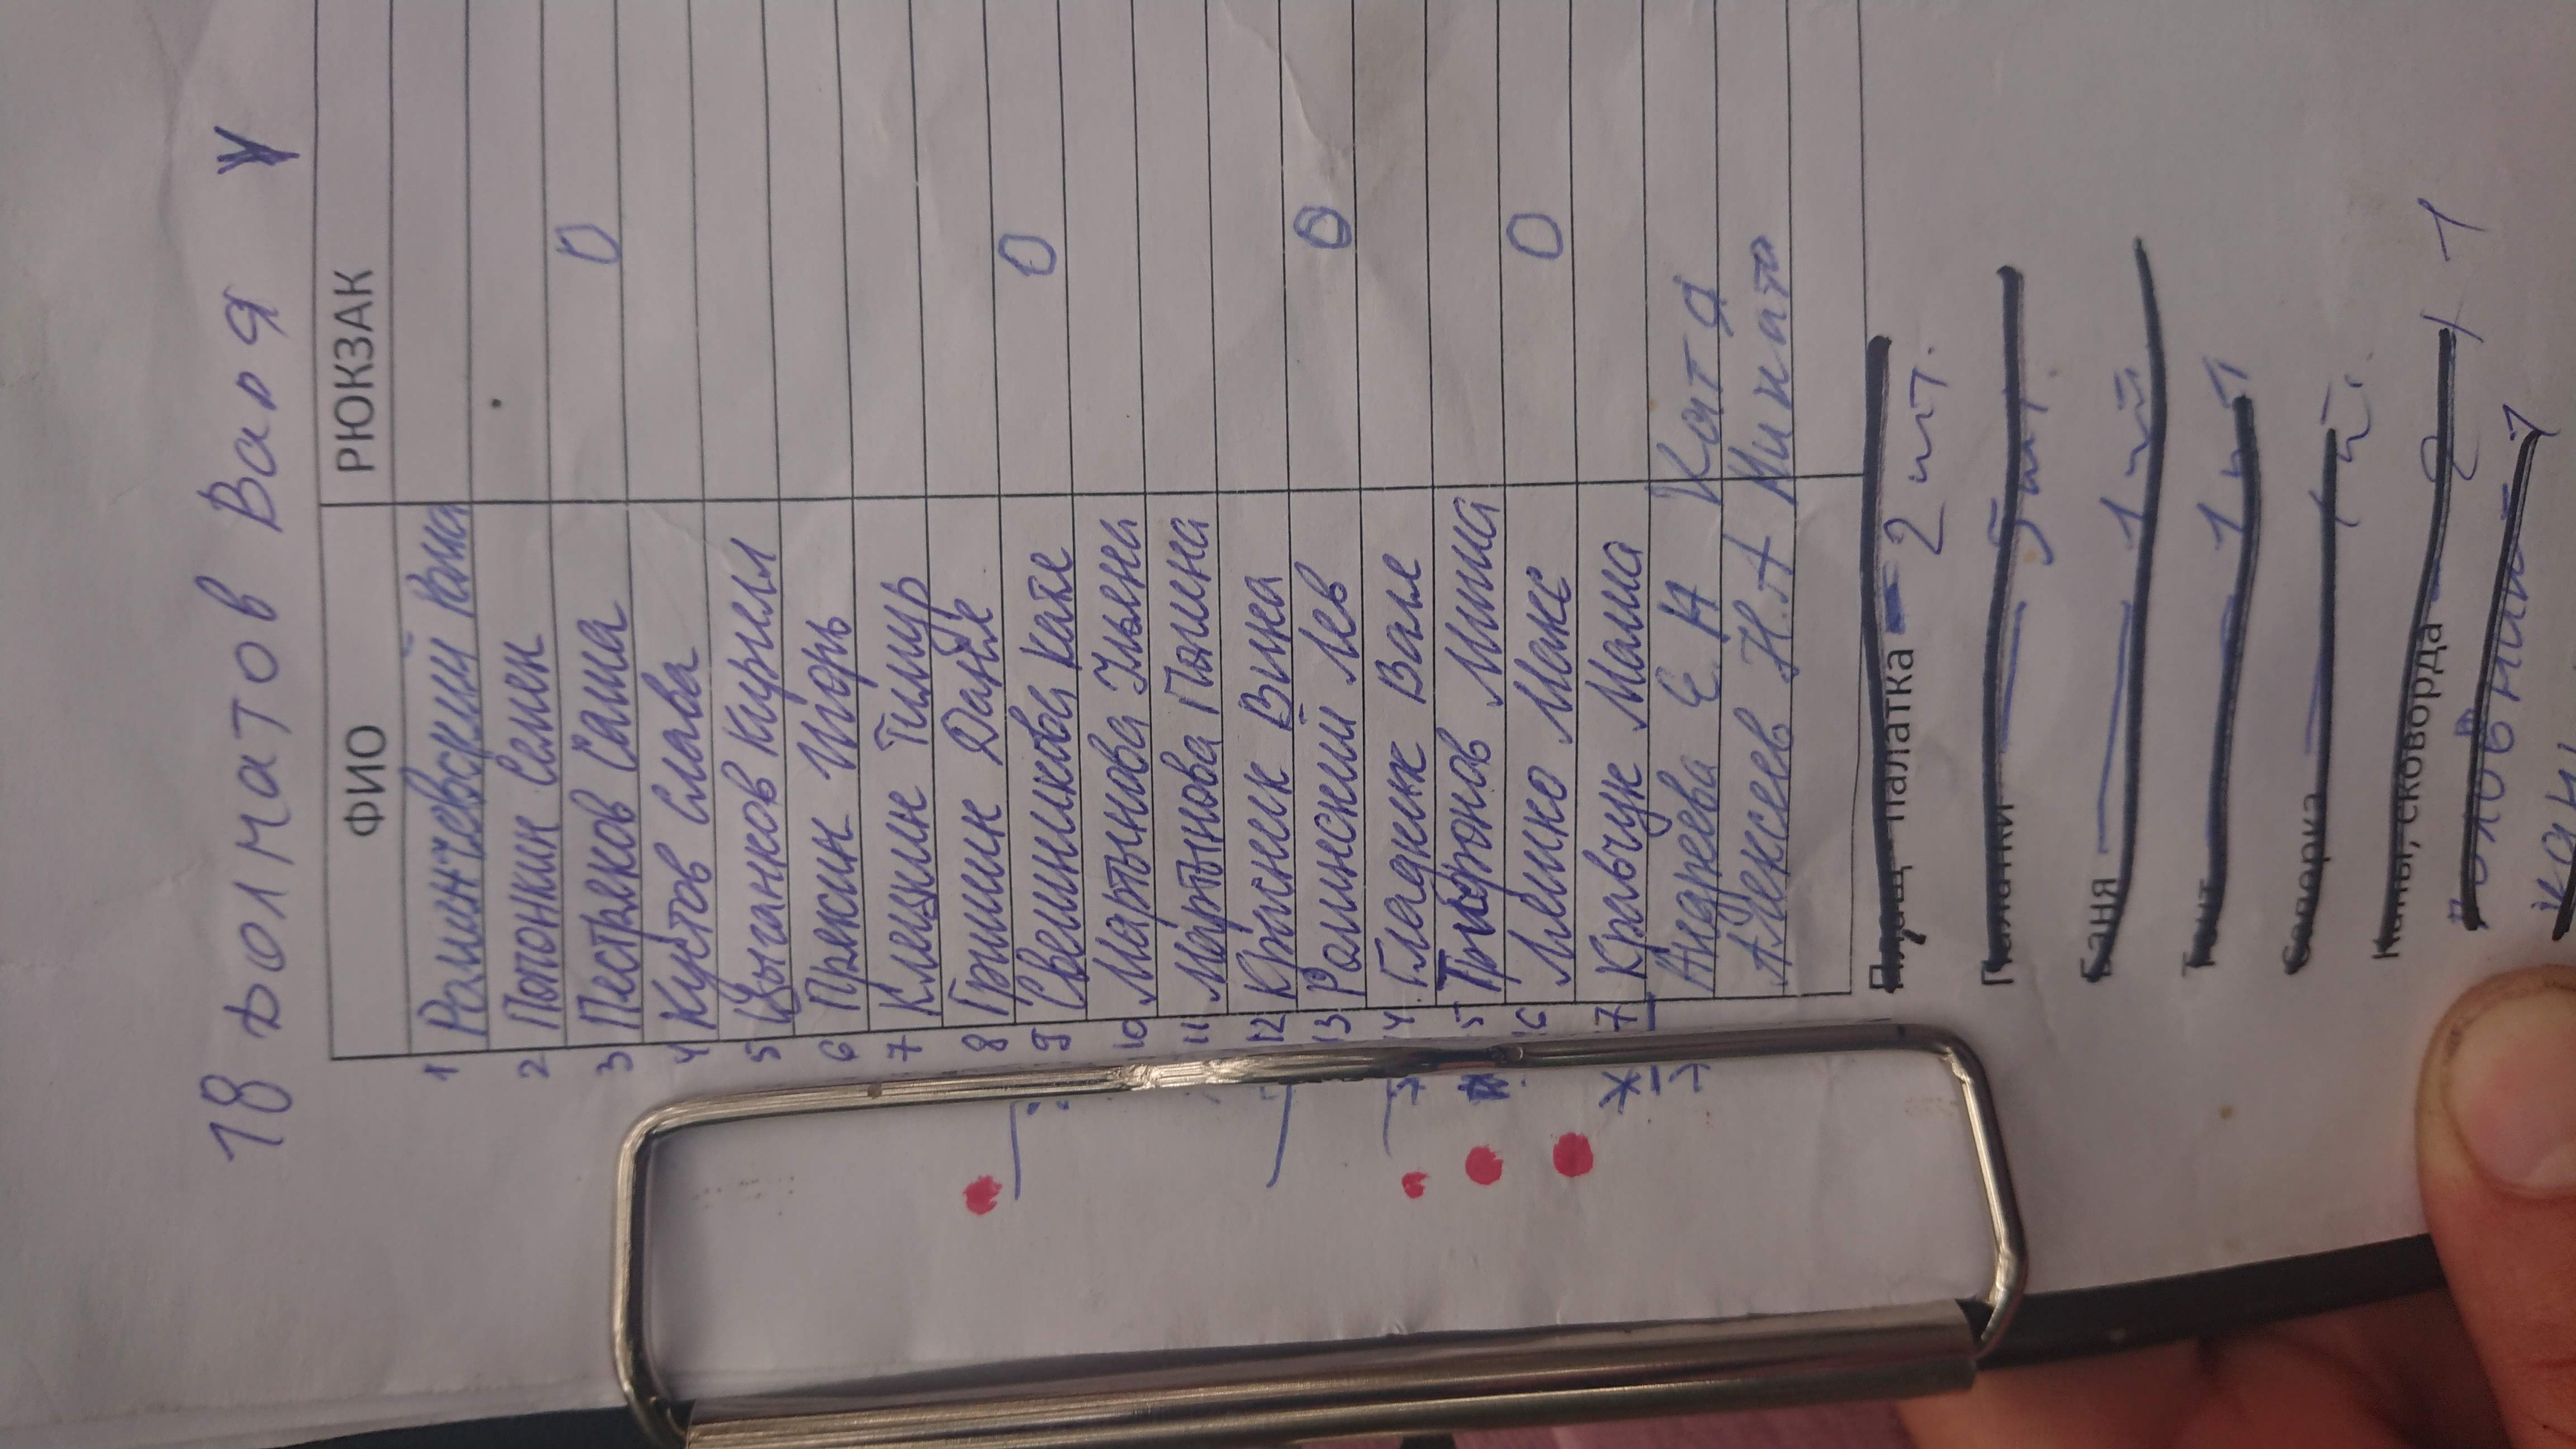 18 Долматов Валя
ФИО РЮКЗАК
1 Романчевский Рома
2 Попонкин Семен
3 Пестряков Саша 0
4 Кустов Слава
5 Цыганков Кирилл
6 Прякин Игорь
7 Клецкин Тимур
8 Гришин Даня
9 Свешникова Катя 0
10 Мартынова Ульяна
11 Мартынова Полина
12 Красник Вика
13 Ролинский Лев 0
14 Гладких Валя
15 Трифонов Миша
16 Ляшко Макс 0
17 Кравчук Маша
Андреева Е.А Катя
Алексеев Н.А Никита
Плащ - палатка - 2 шт.
Палатки 5 шт.
Баня 1 шт
Тент 1 шт
Саперка 1 шт.
Каны, сковорда - 2 + 1
Половник - 1